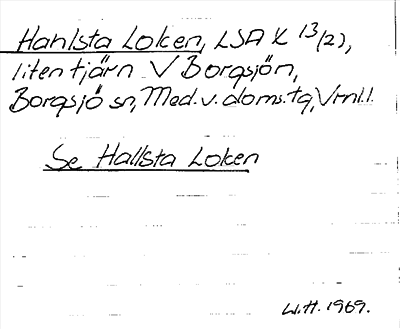 Hahlsta Loken, LSA K 13/(2),
liten tjärn V Borgsjön,
Borgsjö sn, Med. v. doms. tg, Vrnl. l.
Se Hallsta Loken
W.H. 1969.